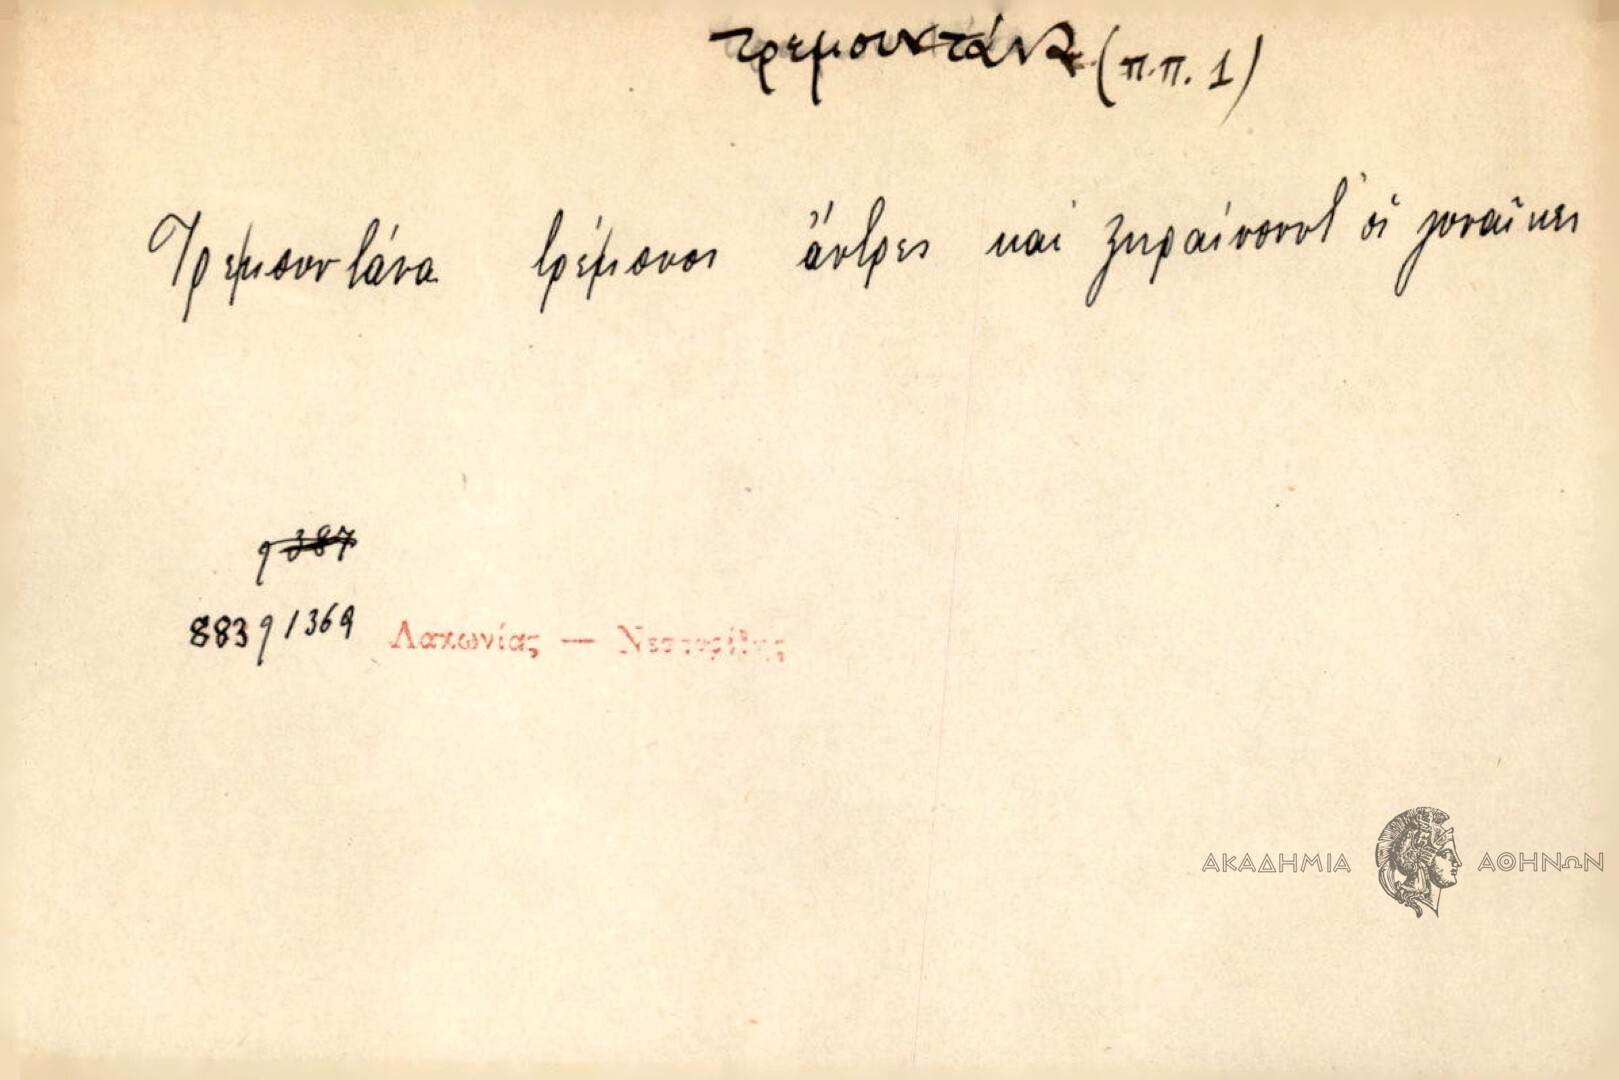 τρεμουντάνα (π.π. 1)
Τρεμουντάνα τρέμουνοι ἄντρες καὶ ξηραίνουντ' οἱ γυναῖκες
9 387
883 9/369 Λακωνίας — Νεστορίδης
ΑΚΑΔΗΜΙΑ ΑΘΗΝΩΝ